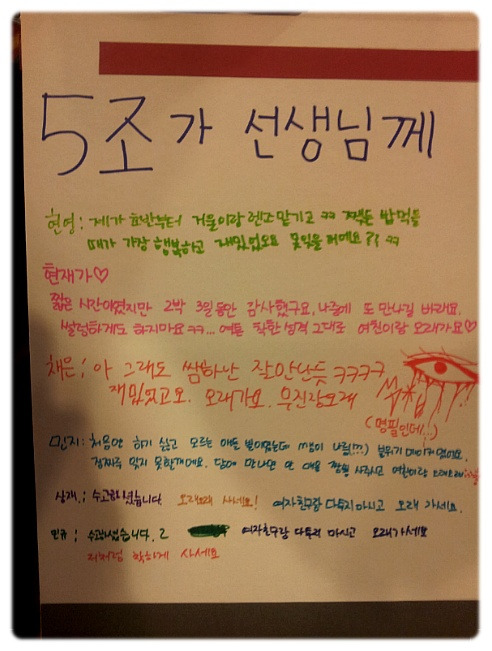 5조가 선생님께
현영: 제가 초반부터 거울이랑 렌즈 맡기고 ㅋㅋ 쨌든 밥먹을
때가 가장 행복하고 재미있었어요 못잊을거에요?? ㅋㅋ
현재가♡
짧은 시간이였지만 2박 3일동안 감사했구요, 나중에 또 만나길 바래요.
썰렁하게도 하지마요 ㅋㅋ... 여튼 착한 성격 그대로 여친이랑 오래가요♡
채은: 아 그래도 쌤하난 잘만난듯 ㅋㅋㅋㅋ
재밌었고요. 오래가요. 우진랑오래
(명필인데...!)
민지: 처음엔 하기 싫고 모르는 애들 별이었는데 쌤이 나름(!!?)
진짜루 잊지 못할꺼에요. 담에 만나면 또 사주시고 여친이랑
상재: 수고하셨습니다. 오래오래 사세요! 여자친구랑 다투지마시고 오래 가세요.
민규: 수고하셨습니다. 2 여자친구랑 다투지 마시고 오래가세요
저처럼 핫하게 사세요